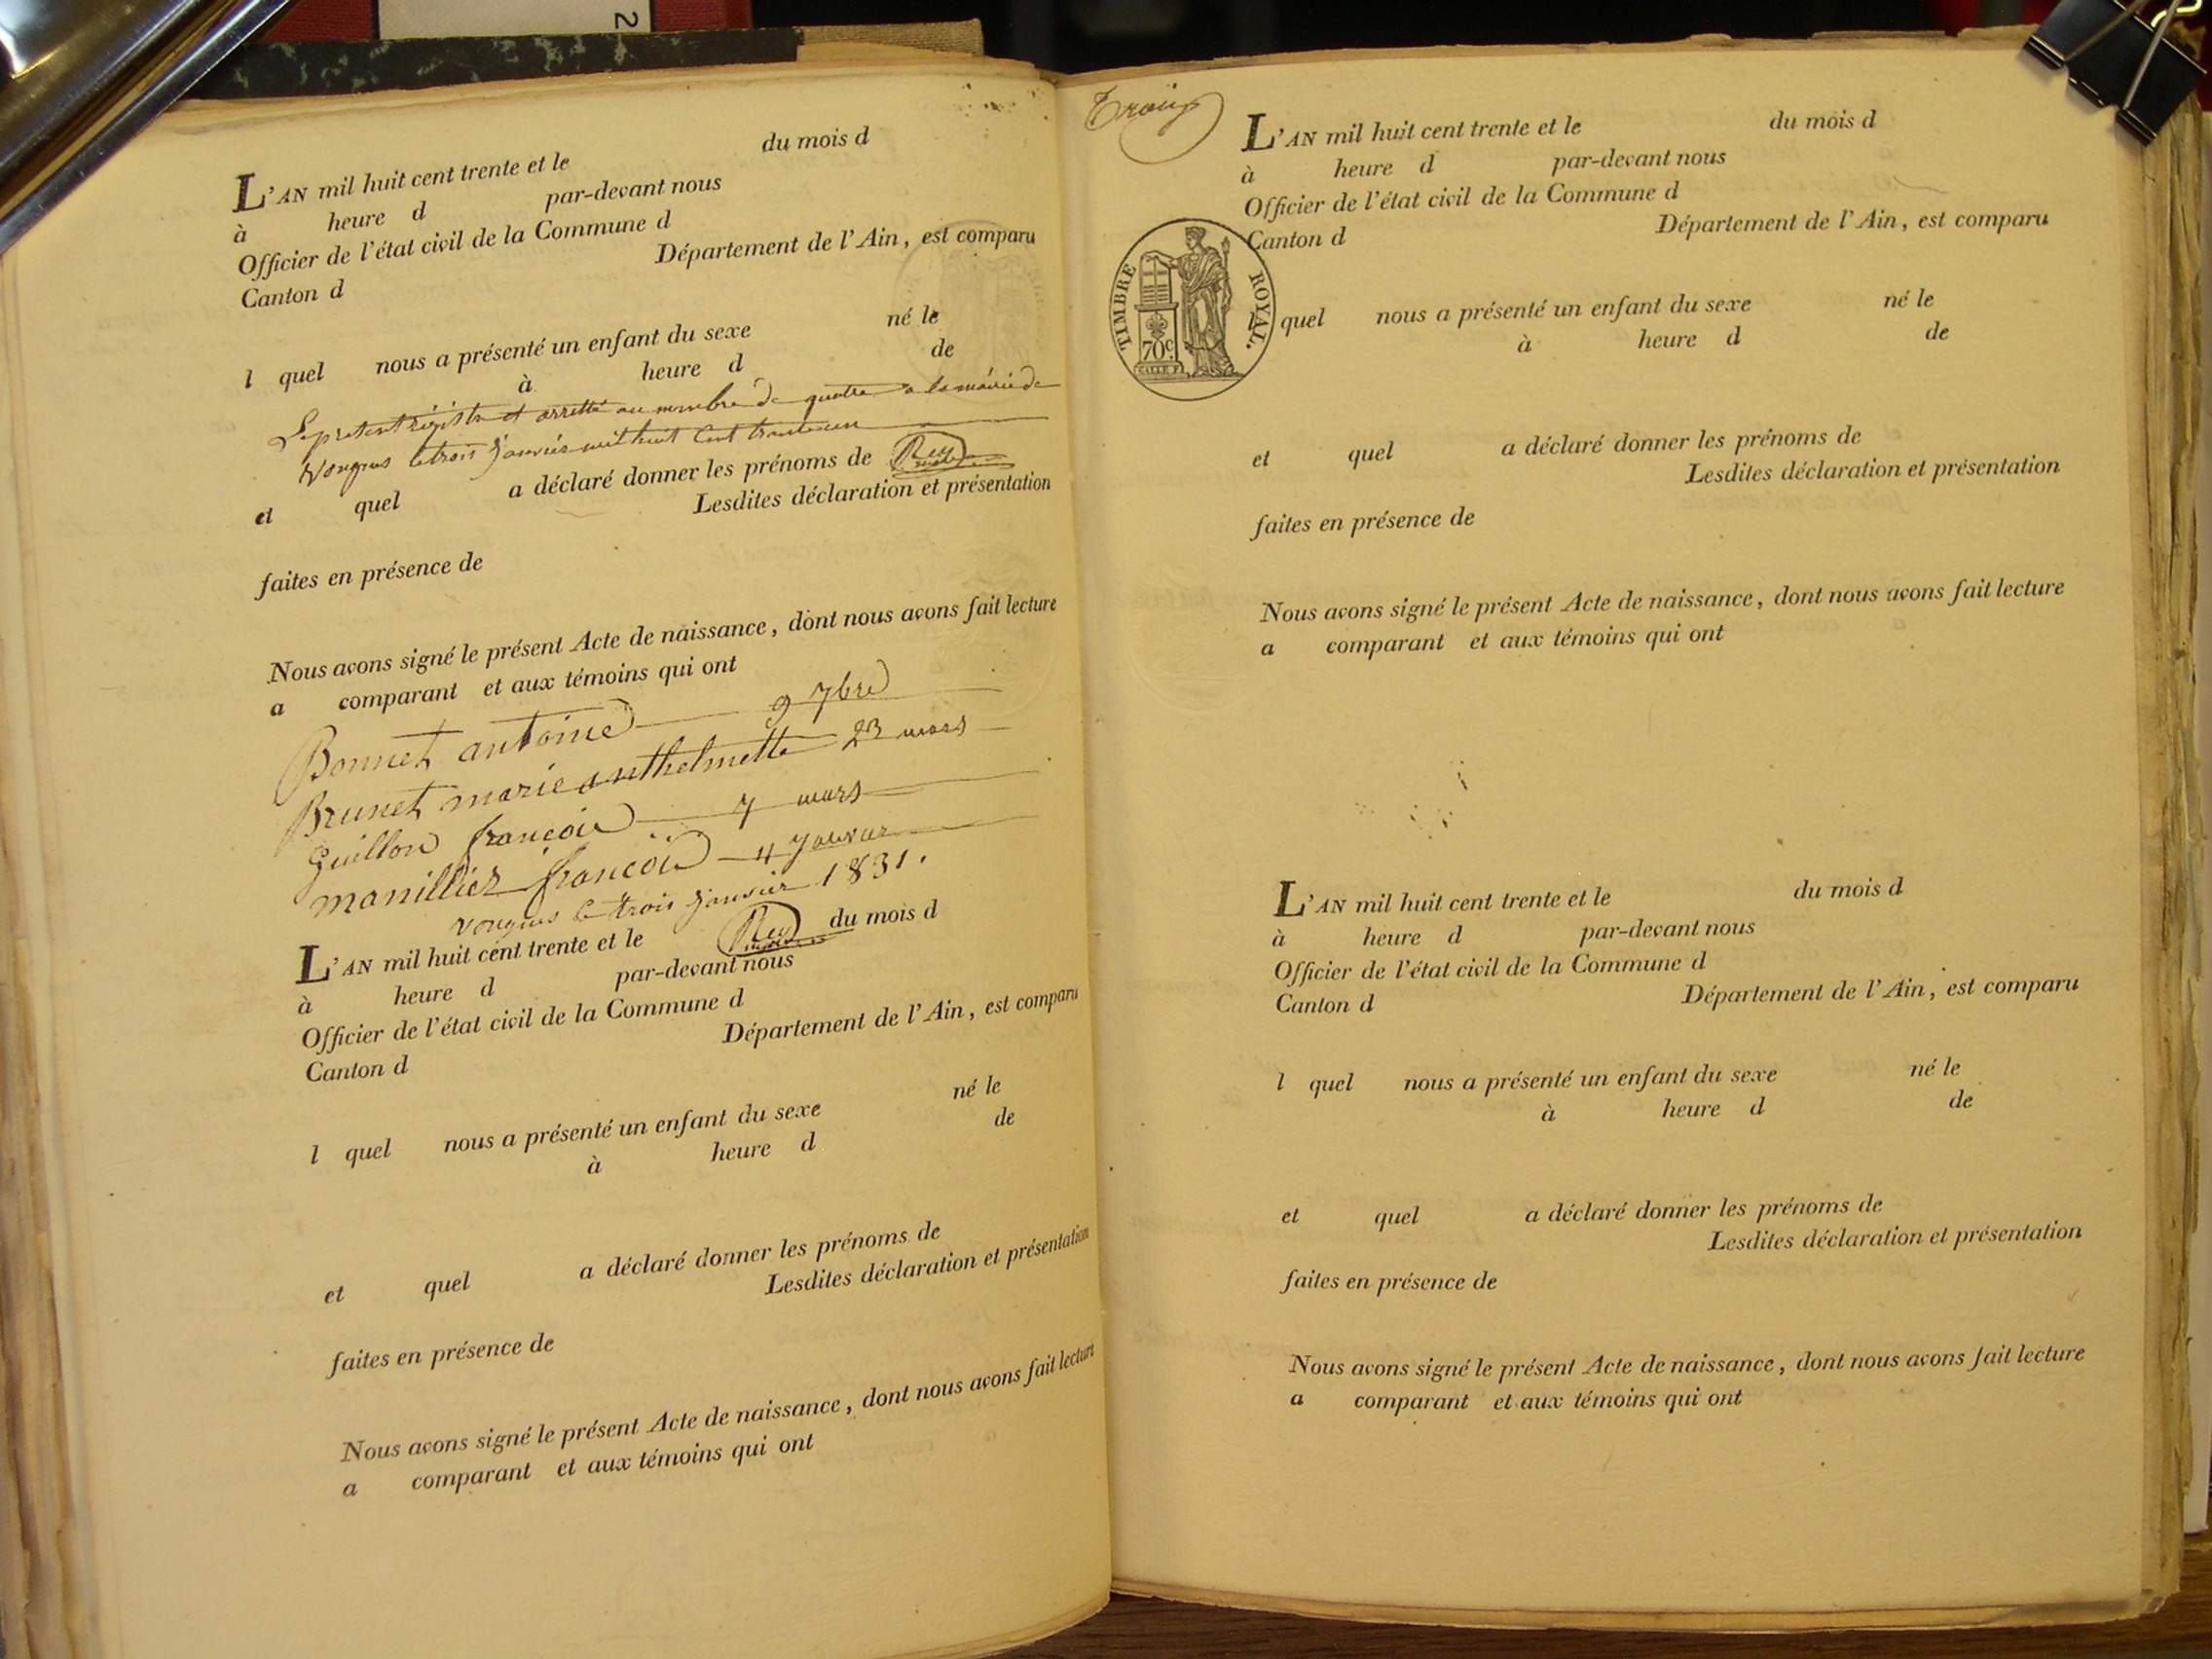 2
L'AN mil huit cent trente et le du mois d
à heure d par-devant nous
Officier de l'état civil de la Commune d
Canton d Département de l'Ain, est comparu
l quel nous a présenté un enfant du sexe né le
à heure d de
Le present régistre et arretté au nombre de quatre a la mairie de
Vongnes le trois janvier mil huit cent trente un
et quel a déclaré donner les prénoms de Rey
Lesdites déclaration et présentation
faites en présence de
Nous avons signé le présent Acte de naissance, dont nous avons fait lecture
a comparant et aux témoins qui ont
Bonnet antoine 9 7bre
Brunet marie anthelmette 23 mars
Guillon françois 7 mars
manillier françois 4 janvier
Vongnes le trois janvier 1831.
Rey
L'AN mil huit cent trente et le du mois d
à heure d par-devant nous
Officier de l'état civil de la Commune d
Canton d Département de l'Ain, est comparu
l quel nous a présenté un enfant du sexe né le
à heure d de
et quel a déclaré donner les prénoms de
Lesdites déclaration et présentation
faites en présence de
Nous avons signé le présent Acte de naissance, dont nous avons fait lecture
a comparant et aux témoins qui ont
L'AN mil huit cent trente et le du mois d
à heure d par-devant nous
Officier de l'état civil de la Commune d
Canton d Département de l'Ain, est comparu
TIMBRE ROYAL.
70c
l quel nous a présenté un enfant du sexe né le
à heure d de
et quel a déclaré donner les prénoms de
Lesdites déclaration et présentation
faites en présence de
Nous avons signé le présent Acte de naissance, dont nous avons fait lecture
a comparant et aux témoins qui ont
L'AN mil huit cent trente et le du mois d
à heure d par-devant nous
Officier de l'état civil de la Commune d
Canton d Département de l'Ain, est comparu
l quel nous a présenté un enfant du sexe né le
à heure d de
et quel a déclaré donner les prénoms de
Lesdites déclaration et présentation
faites en présence de
Nous avons signé le présent Acte de naissance, dont nous avons fait lecture
a comparant et aux témoins qui ont